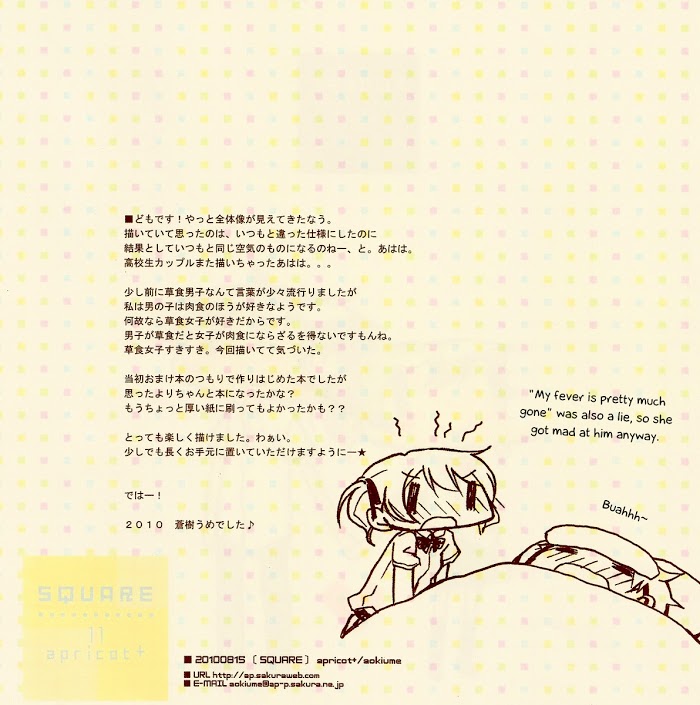 ■どもです！やっと全体像が見えてきたなう。
描いていて思ったのは、いつもと違った仕様にしたのに
結果としていつもと同じ空気のものになるのねー、と。あはは。
高校生カップルまた描いちゃったあはは。。。
少し前に草食男子なんて言葉が少々流行りましたが
私は男の子は肉食のほうが好きなようです。
何故なら草食女子が好きだからです。
男子が草食だと女子が肉食にならざるを得ないですもんね。
草食女子すきすき。今回描いてて気づいた。
当初おまけ本のつもりで作りはじめた本でしたが
思ったよりちゃんと本になったかな？
もうちょっと厚い紙に刷ってもよかったかも？？
とっても楽しく描けました。わぁい。
少しでも長くお手元に置いていただけますように―★
では―！
２０１０　蒼樹うめでした♪
"My fever is pretty much
gone" was also a lie, so she
got mad at him anyway.
Buahhh~
SQUARE
apricot+
■ 20100815 〔 SQUARE 〕 apricot+/aokiume
■ URL http://ap.sakuraweb.com
■ E-MAIL aokiume@ap-p.sakura.ne.jp